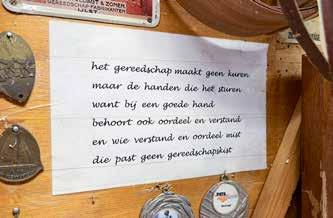 & ZONEN.
GEREEDSCHAP-FABRIKANTEN
IJLST
het gereedschap maakt geen kuren
maar de handen die het sturen
want bij een goede hand
behoort ook oordeel en verstand
en wie verstand en oordeel mist
die past geen gereedschapskist